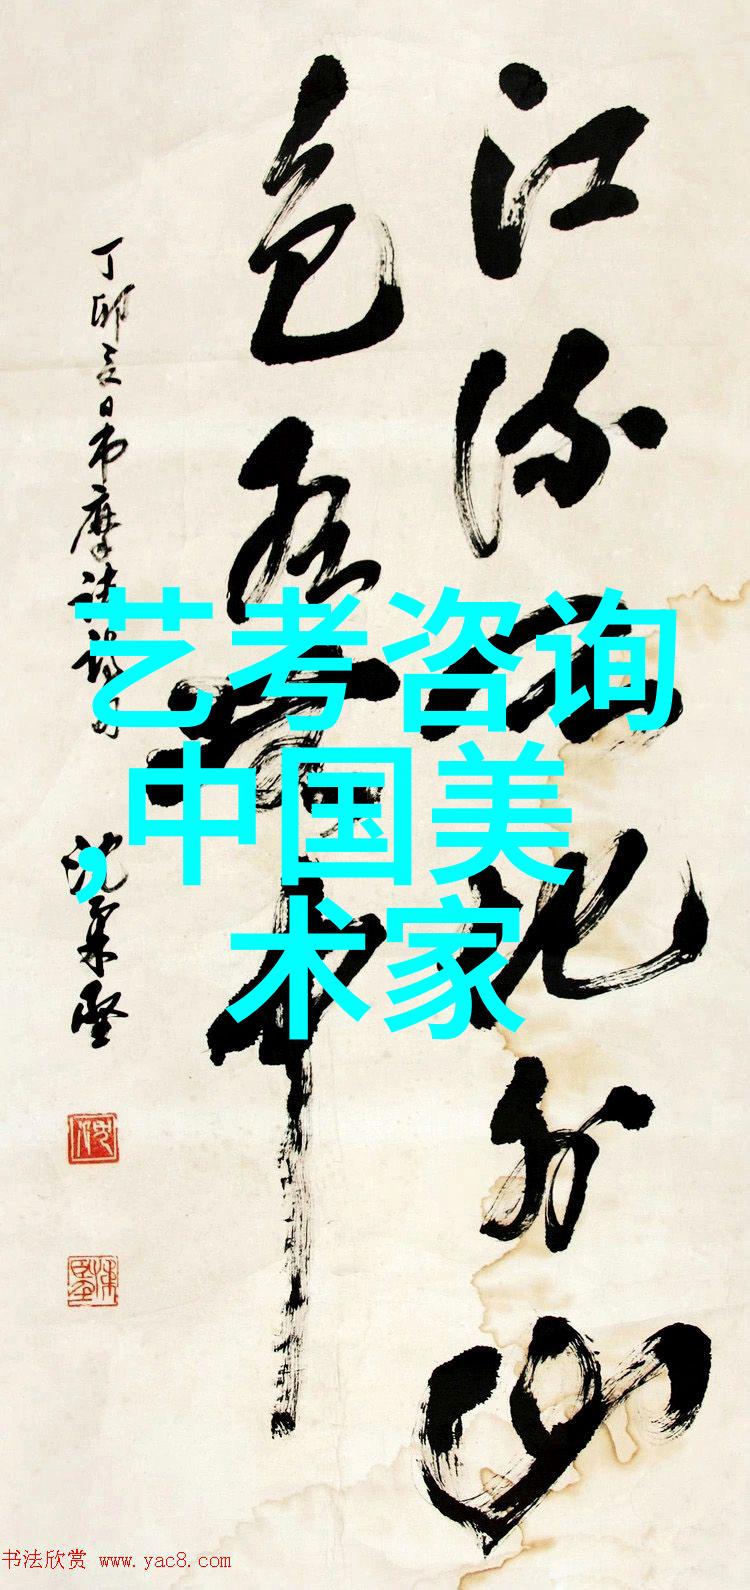 江流天地外山
色有无中
丁卯夏日书摩诘诗句
沈集坚
艺考咨询
,中国美
术家
书法欣赏 www.yac8.com